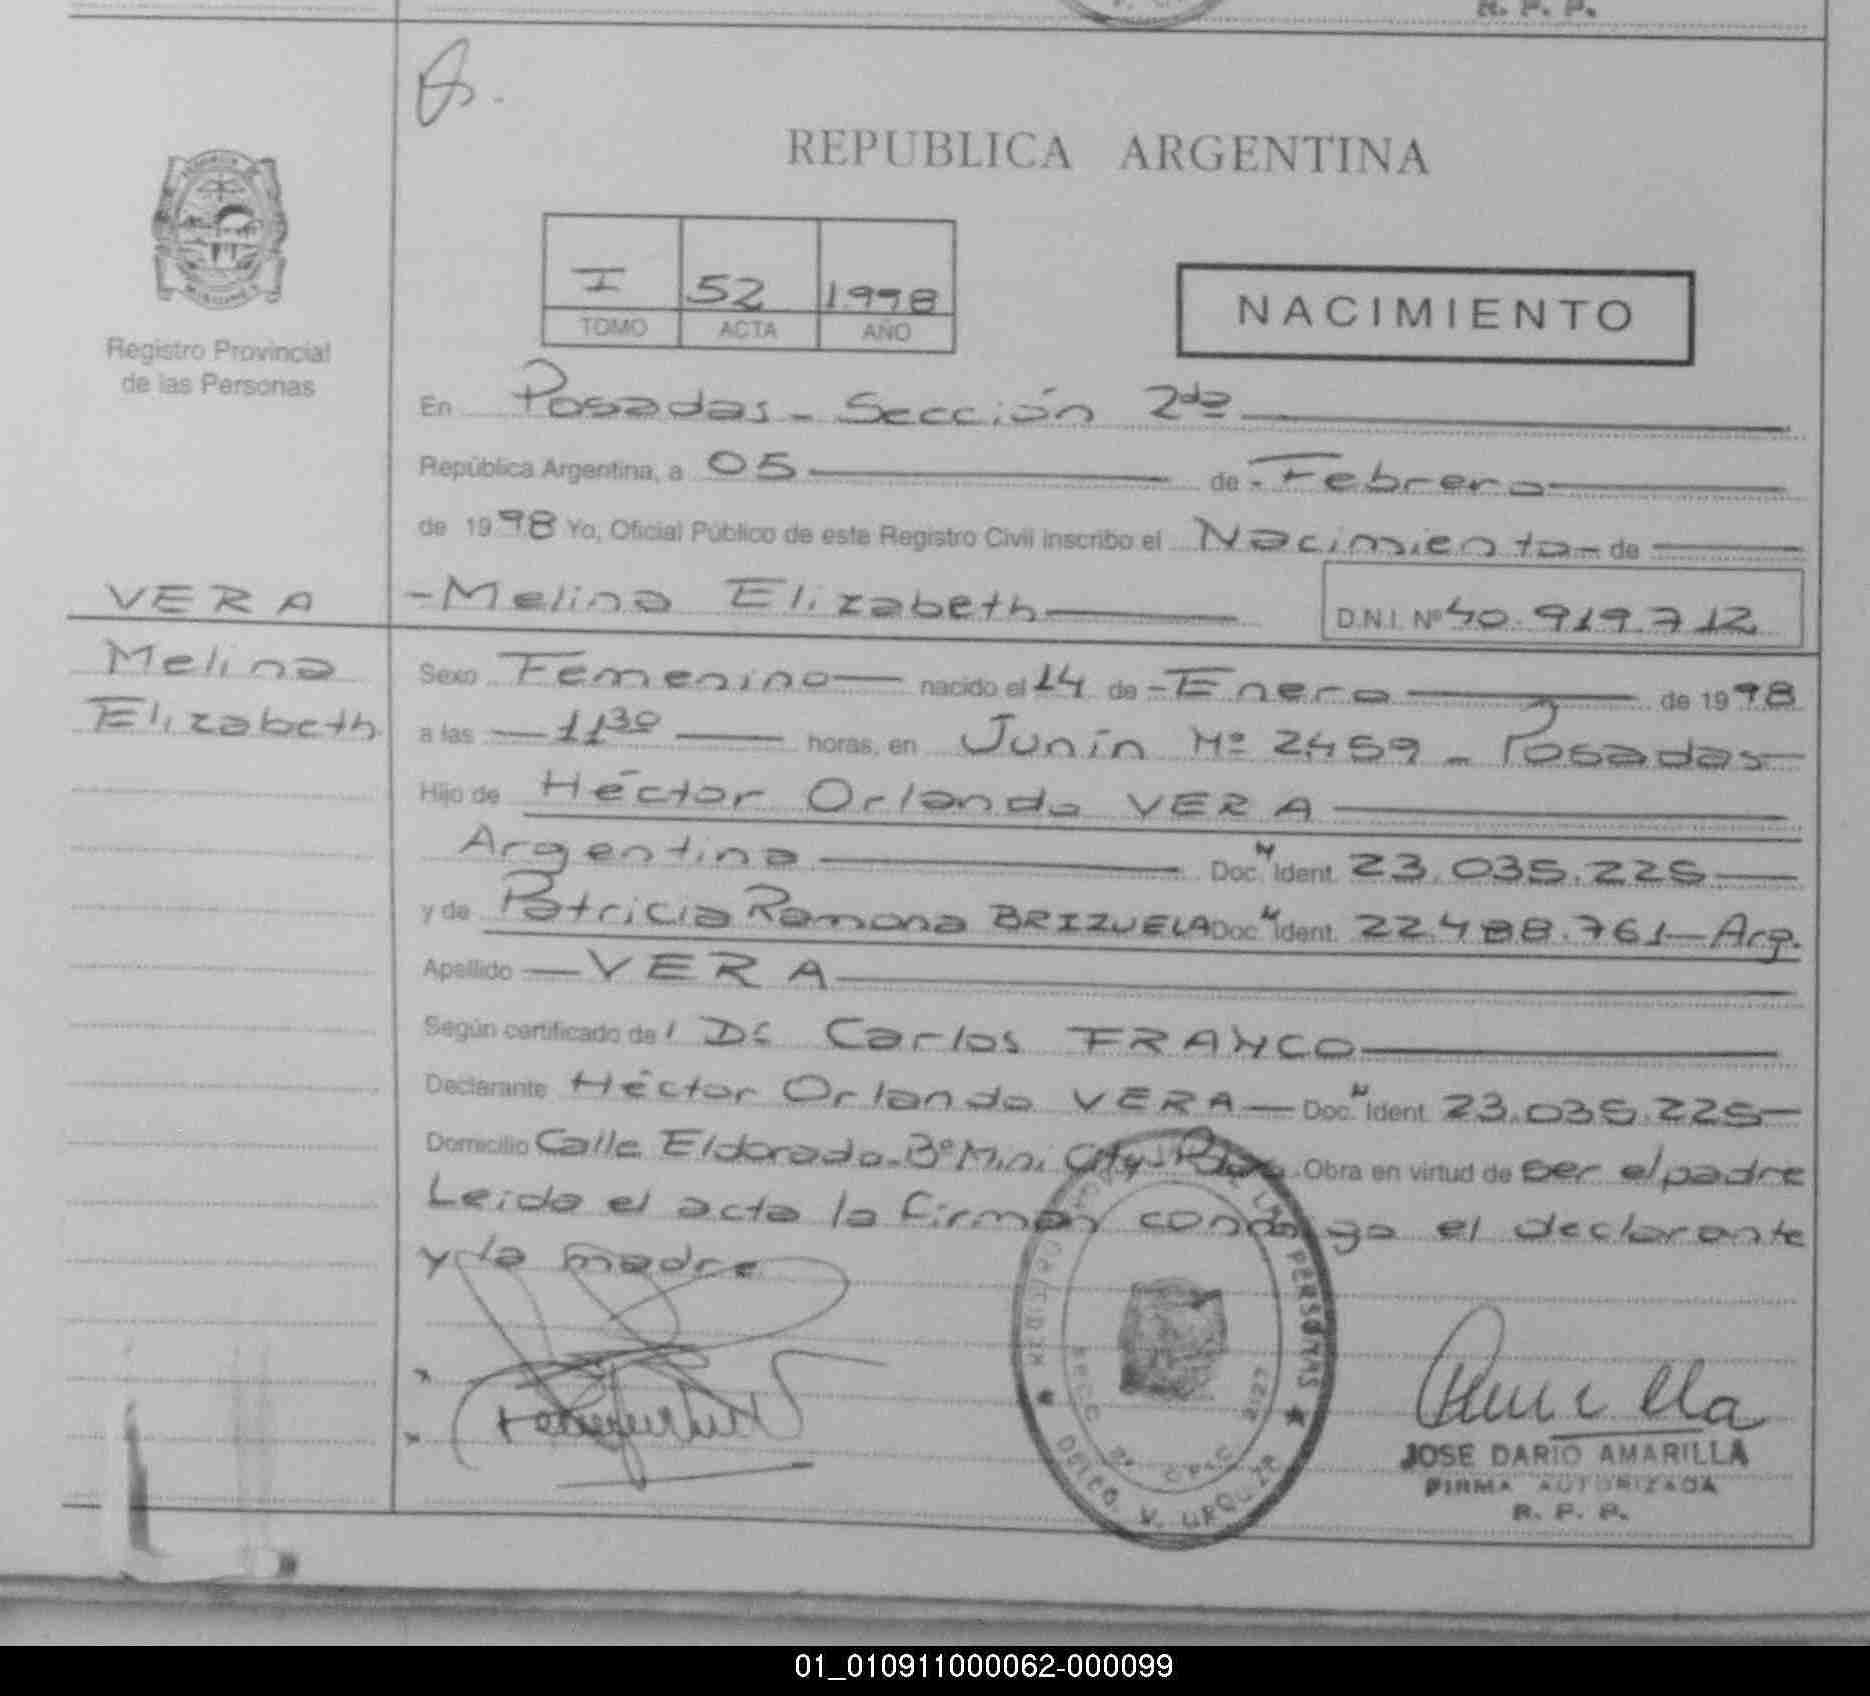 R. P. P.
REPUBLICA ARGENTINA
I 52 1998
TOMO ACTA AÑO
NACIMIENTO
MISIONES
Registro Provincial
de las Personas
En Posadas - Sección 2da
República Argentina, a 05 de - Febrero
de 1998 Yo, Oficial Público de este Registro Civil inscribo el Nacimiento - de
VERA
Melina
Elizabeth
- Melina Elizabeth D.N.I. Nº 40.919.712
Sexo Femenino nacido el 14 de - Enero de 1998
a las 11 30 horas, en Junín Nº 2459 - Posadas
Hijo de Héctor Orlando VERA
Argentina Doc. N Ident. 23.035.225
y de Patricia Ramona BRIZUELA Doc. N Ident. 22.488.761 - Arg.
Apellido - VERA
Según certificado de l Dr Carlos FRANCO
Declarante Héctor Orlando VERA - Doc. N Ident. 23.035.225
Domicilio Calle Eldorado - Bº Mini City - Obra en virtud de ser el padre
Leida el acta la firman conmigo el declarante
y la madre
PERSONAS
V. URQUIZA
JOSE DARIO AMARILLA
FIRMA AUTORIZADA
R. P. P.
01_010911000062-000099